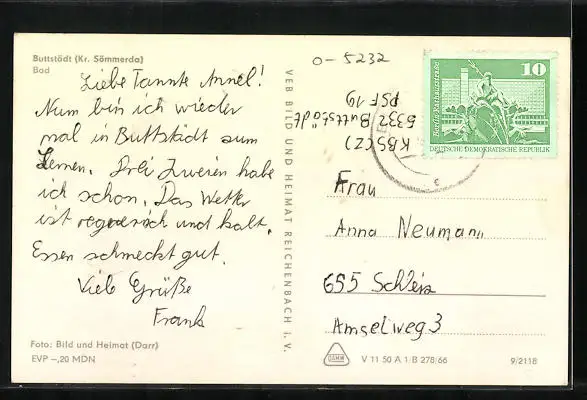 Buttstädt (Kr. Sömmerda)
Bad
Liebe Tannte Annel!
Nun bin ich wieder
mal in Buttstädt zum
Lernen. Drei Zweien habe
ich schon. Das Wetter
ist regnerisch und kalt.
Essen schmeckt gut.
Viele Grüße
Frank
Foto: Bild und Heimat (Darr)
EVP –,20 MDN
VEB BILD UND HEIMAT REICHENBACH i. V.
o-5232
KBS (Z)
5232 Buttstädt
PSF 19
10
Berlin, Rathausstraße
DEUTSCHE DEMOKRATISCHE REPUBLIK
Frau
Anna Neumann
655 Schleiz
Amselweg 3
DAMW
V 11 50 A 1/B 278/66
9/2118